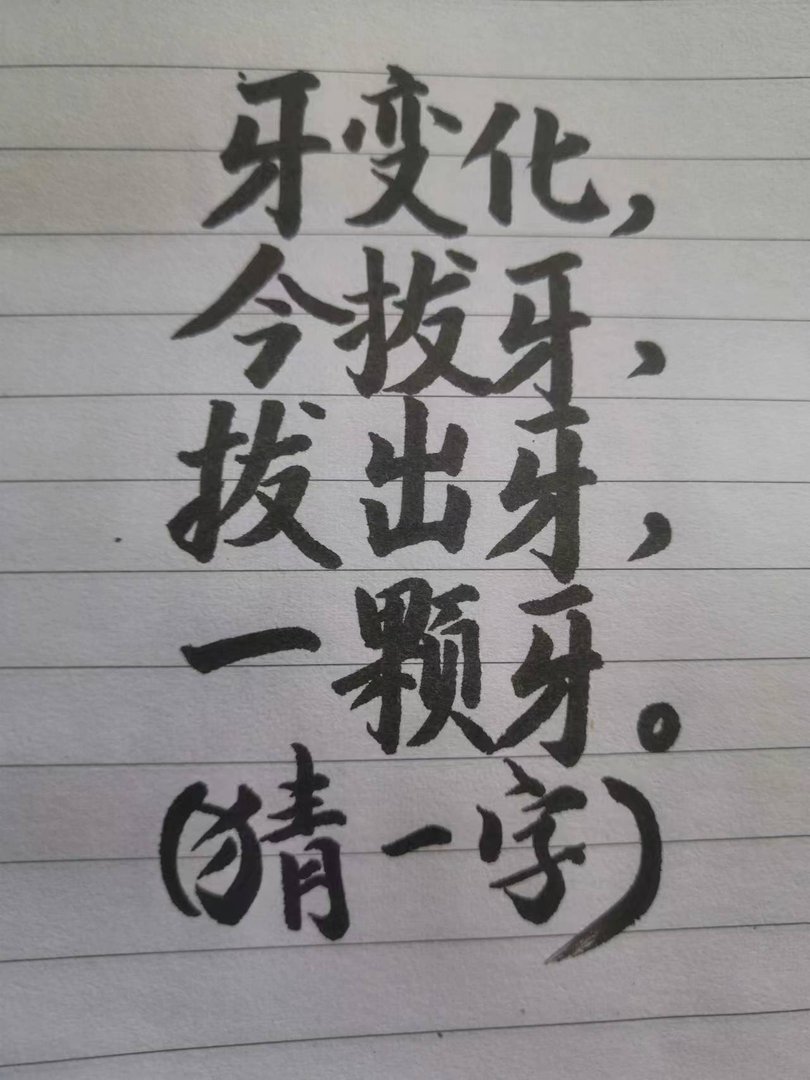 牙变化,
今拔牙,
拔出牙,
一颗牙。
(猜一字)